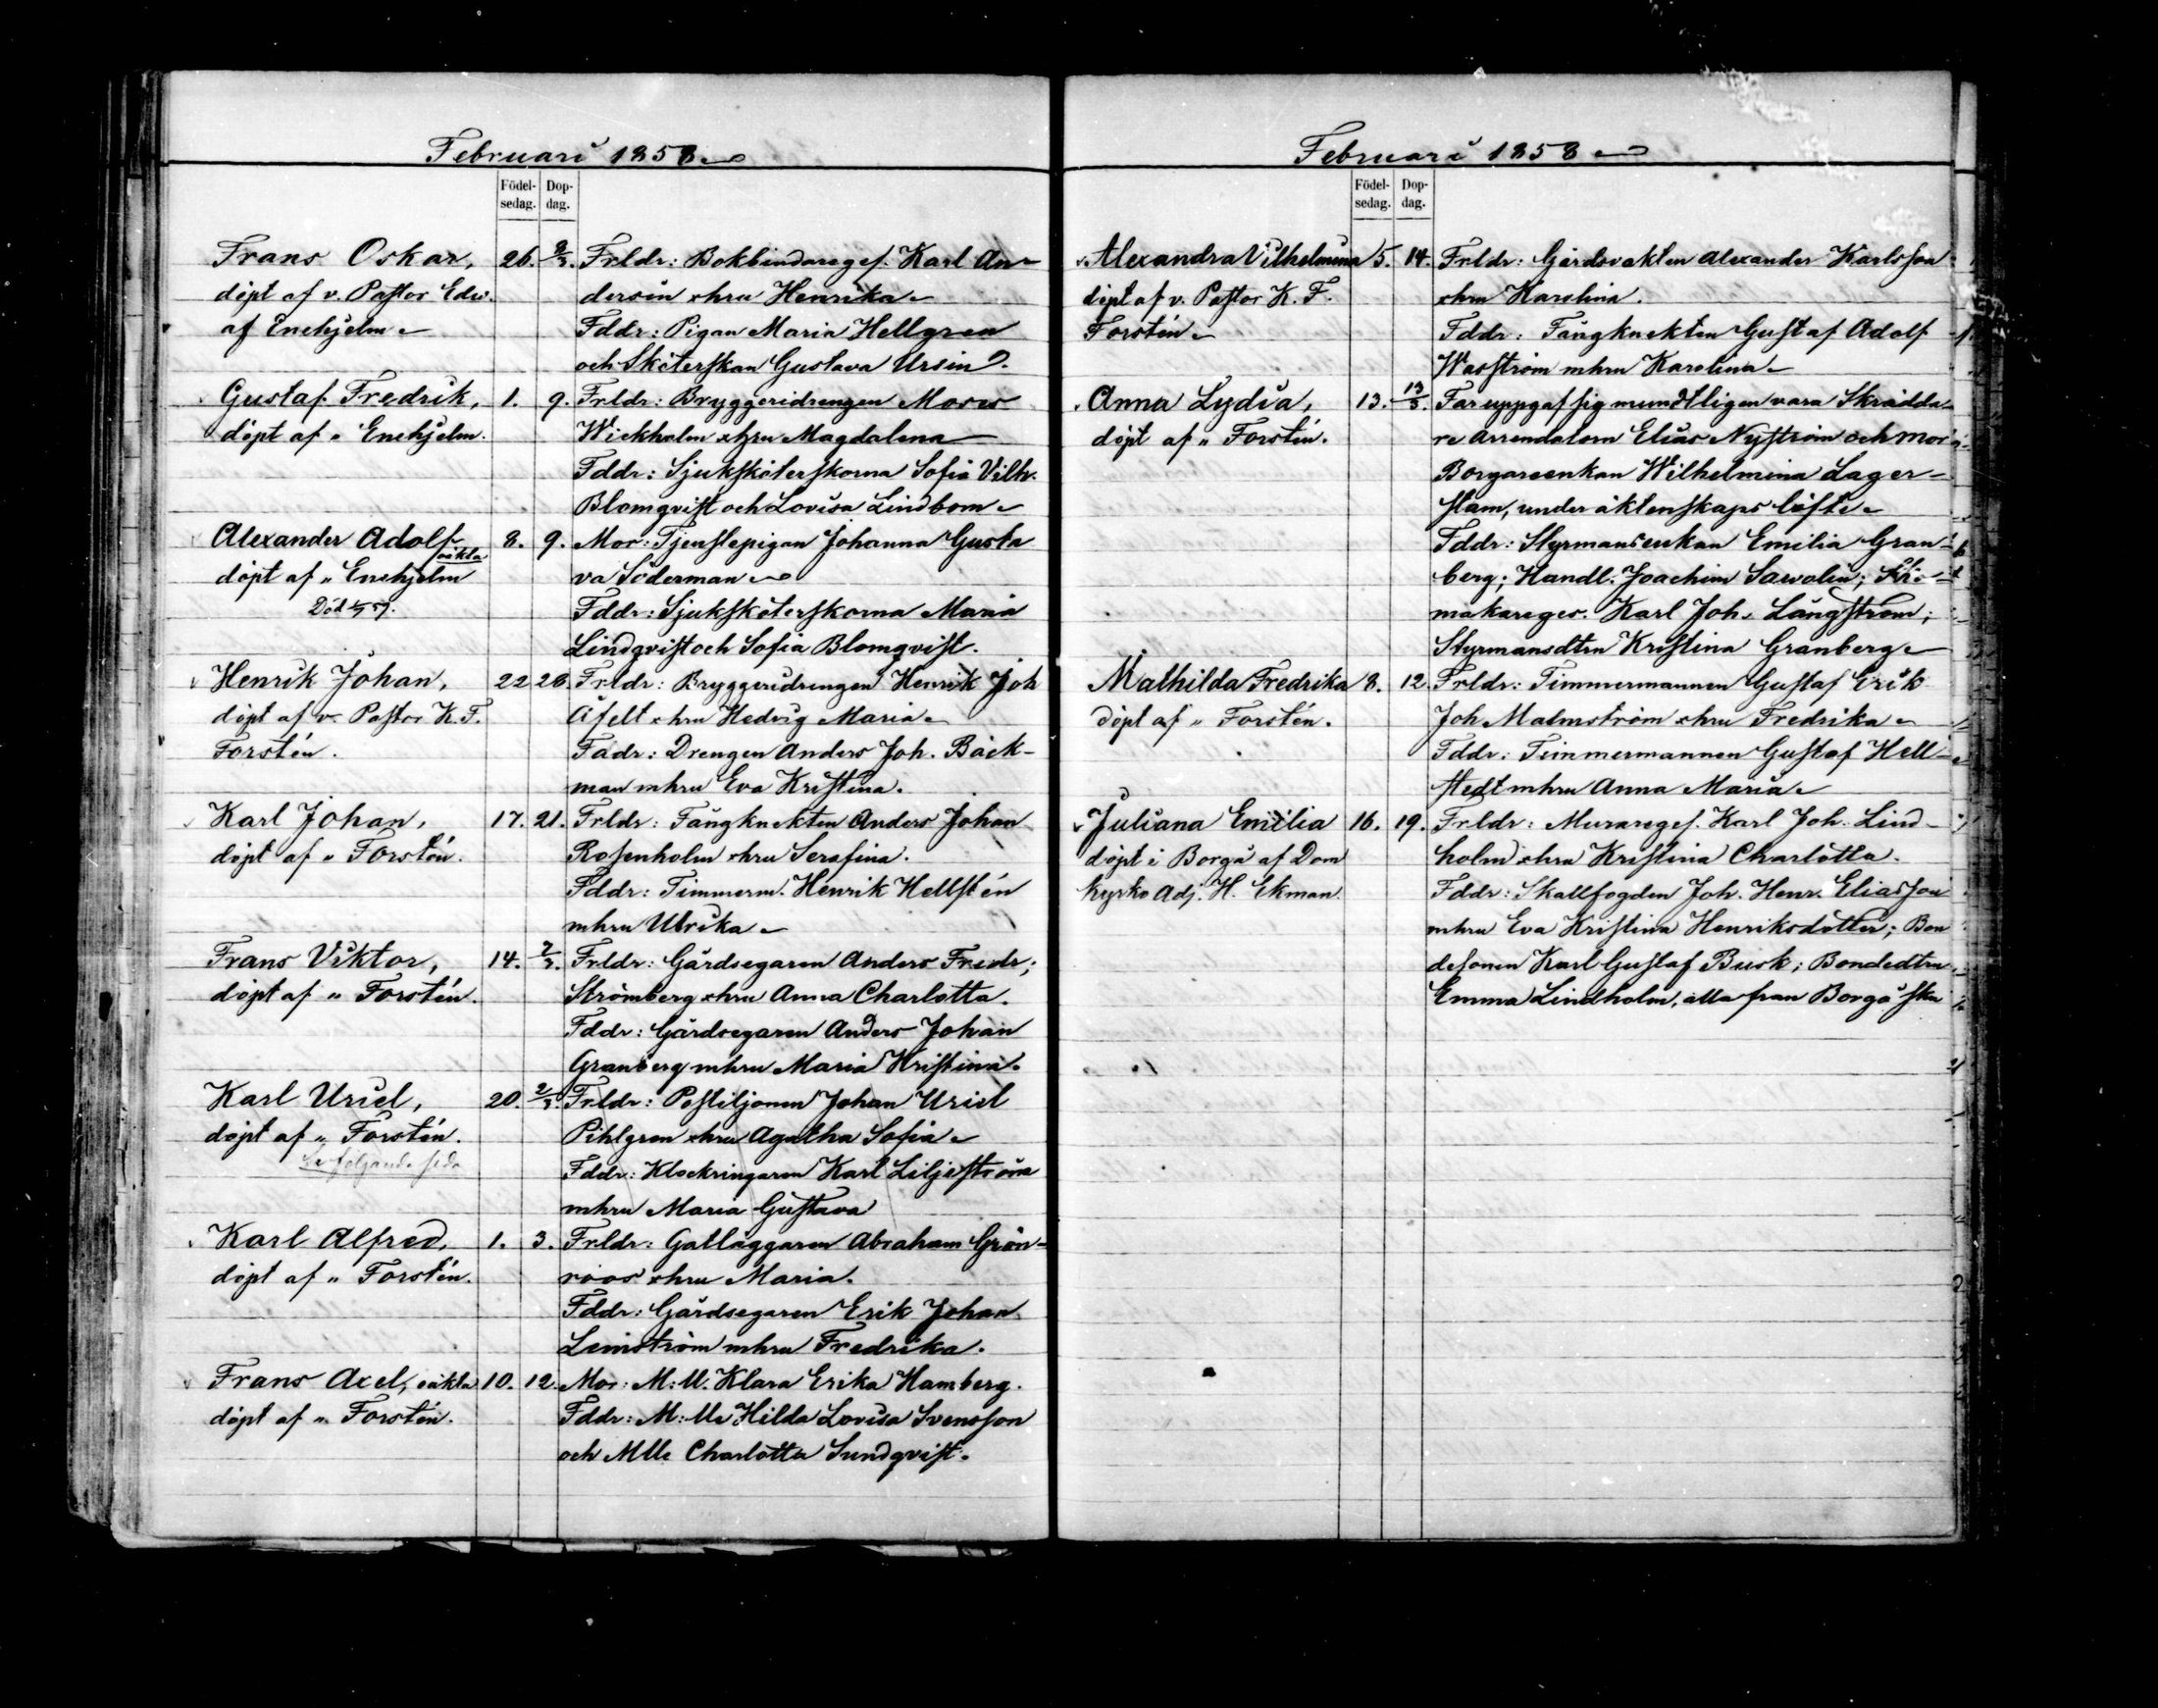 Februari 1858
Födel- Dop-
sedag. dag.
Frans Oskar, 26. 2/3. Frldr: Bokbindareges. Karl An-
döpt af v. Pastor Edv. dersin o hru Henrika
af Enehjelm Fddr: Pigan Maria Hellgren
och Sköterskan Gustava Ursin.
Gustaf Fredrik, 1. 9. Frldr: Bryggeridrengen Moses
döpt af " Enehjelm. Wickholm o hru Magdalena
Fddr: Sjuksköterskorna Sofia Vilh.
Blomqvist och Lovisa Lindbom
Alexander Adolf 8. 9. Mor: Tjenstepigan Johanna Gusta
oäkta
döpt af " Enehjelm va Söderman
Död Fddr: Sjuksköterskorna Maria
Lindqvist och Sofia Blomqvist.
Henrik Johan, 22 28. Frldr: Bryggeridrengen Henrik Joh
döpt af v. Pastor K. F. Afelt o hru Hedvig Maria
Forstén. Fadr: Drengen Anders Joh. Bäck-
man mhru Eva Kristina.
Karl Johan, 17. 21. Frldr: Fångknekten Anders Johan
döpt af " Forstén. Rosenholm o hru Serafina.
Fddr: Timmerm. Henrik Hellstén
mhru Ulrika
Frans Viktor, 14. 7/3. Frldr: Gårdsegaren Anders Fredr;
döpt af " Forstén. Strömberg o hru Anna Charlotta.
Fddr: Gårdsegaren Anders Johan
Granberg mhru Maria Kristina.
Karl Uriel, 20. 2/3. Frldr: Postiljonen Johan Uriel
döpt af " Forstén. Pihlgren o hru Agatha Sofia
Se följande sida Fddr: Klockringaren Karl Liljeström
mhru Maria Gustava
Karl Alfred, 1. 3. Frldr: Gatläggaren Abraham Grön-
döpt af " Forstén. roos o hru Maria.
Fddr: Gårdsegaren Erik Johan
Lemström mhru Fredrika.
Frans Axel, oäkta 10. 12. Mor: M:ll. Klara Erika Hamberg.
döpt af " Forstén. Fddr: M:lle Hilda Lovisa Svensson
och Mlle Charlotta Sundqvist.
Februari 1858
Födel- Dop-
sedag. dag.
Alexandra Vilhelmina 5. 14. Frldr: Gårdsvakten Alexander Karlsson
döpt af v. Pastor K. F. o hru Karolina.
Forstén Fddr: Fångknekten Gustaf Adolf
Wasström mhru Karolina
Anna Lydia, 13. 13/3. Far uppgaf sig mundtligen vara Skrädda-
döpt af " Forstén. re arrendatorn Elias Nyström och mor
Borgareenkan Wilhelmina Lager-
stam, under äktenskaps löfte
Fddr: Styrmansenkan Emilia Gran-
berg; Handl. Joachim Savolin; Sko-
makareges. Karl Joh. Långström;
Styrmansdtrn Kristina Granberg
Mathilda Fredrika 8. 12. Frldr: Timmermannen Gustaf Erik
döpt af " Forstén. Joh Malmström o hru Fredrika
Fddr: Timmermannen Gustaf Hell-
stedt mhru Anna Maria
Juliana Emilia 16. 19. Frldr: Murareges. Karl Joh. Lind-
döpt i Borgå af Dom holm o hru Kristina Charlotta.
kyrko Adj. H. Ekman. Fddr: Skallfogden Joh. Henr. Eliasson
mhru Eva Kristina Henriksdotter; Bon
desonen Karl Gustaf Busk; Bondedtrn
Emma Lindholm, alla från Borgå skn